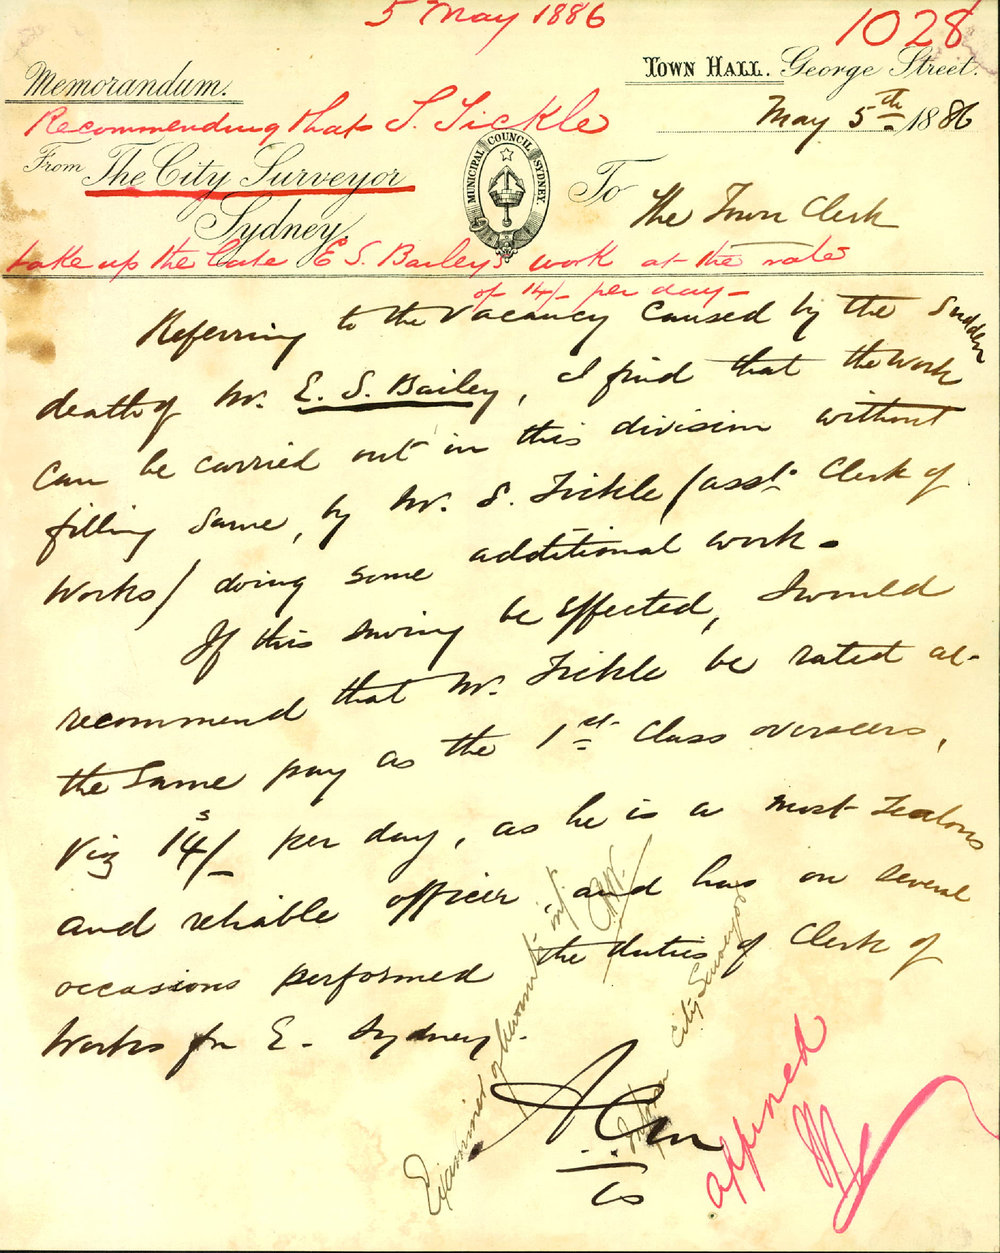 5 May 1886
1028
Memorandum.
TOWN HALL. George Street.
Recommending that S. Tickle
May 5th 1886
From The City Surveyor
Sydney.
MUNICIPAL COUNCIL SYDNEY.
To The Town Clerk
take up the late E S. Bailey's work at the rate
of 14/- per day -
Referring to the vacancy caused by the sudden
death of Mr. E. S. Bailey, I find that the work
can be carried out in this division without
filling same, by Mr. S. Tickle (asst. Clerk of
Works) doing some additional work.
If this saving be effected, I would
recommend that Mr. Tickle be rated at
the same pay as the 1st Class overseers,
Viz 14s/- per day, as he is a most zealous
and reliable officer and has on several
occasions performed the duties of Clerk of
Works for E. Sydney.
Examiner of Accounts inf.
Inform City Surveyor
CS
approved